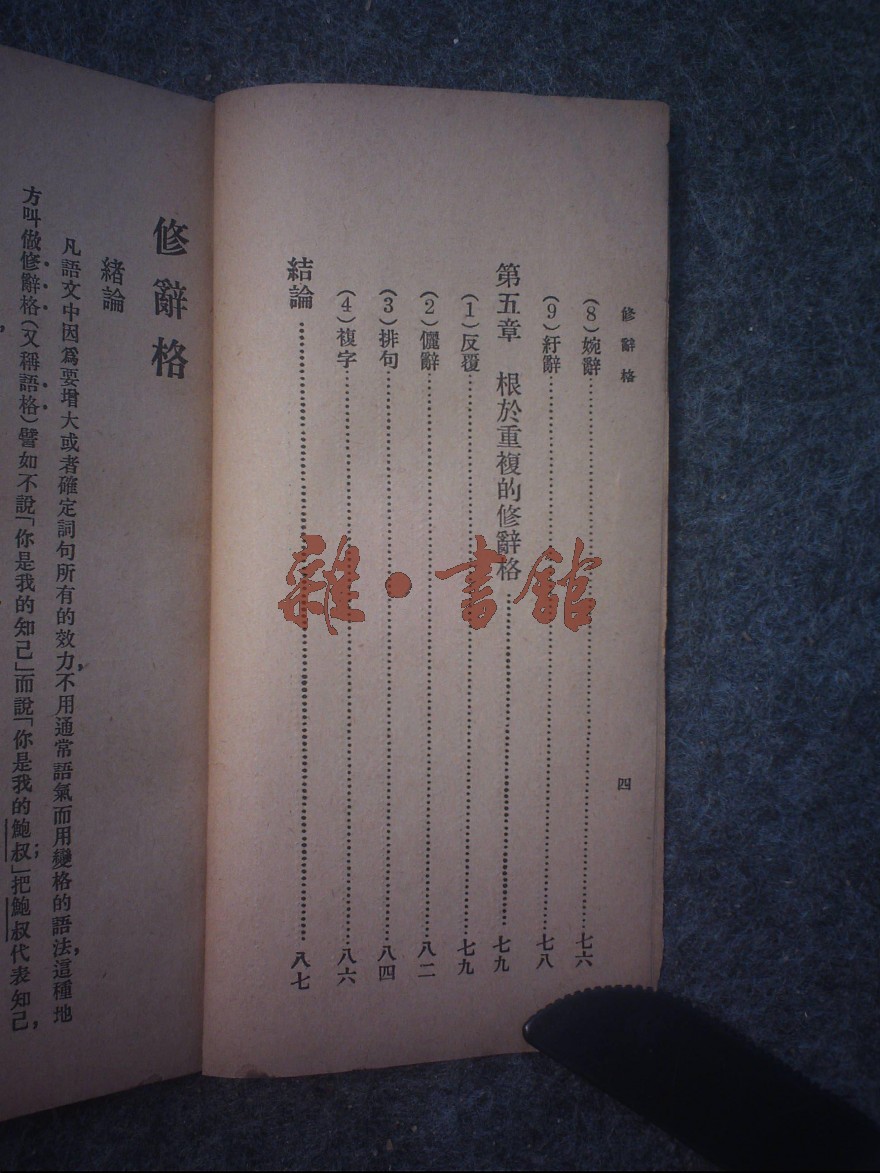 修辭格
四
(8)婉辭……七六
(9)紆辭……七八
第五章　根於重複的修辭格……七九
(1)反覆……七九
(2)儷辭……八二
(3)排句……八四
(4)複字……八六
結論……八七
修辭格
緒論
凡語文中因爲要增大或者確定詞句所有的效力，不用通常語氣而用變格的語法，這種地
方叫做修辭格(又稱語格)譬如不說「你是我的知己」而說「你是我的鮑叔」；把鮑叔代表知己，
雜·書館